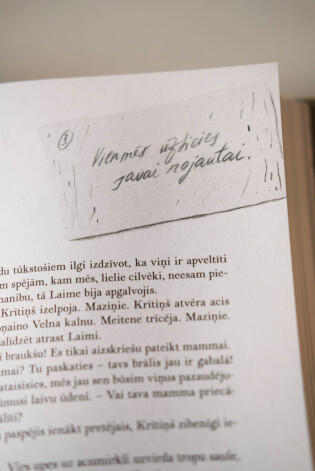 3
Vienmēr uzticies
savai nojautai.
du tūkstošiem ilgi izdzīvot, ka viņi ir apveltīti
m spējām, kam mēs, lielie cilvēki, neesam pie-
manību, tā Laime bija apgalvojis.
Krītiņš izelpoja. Maziņie. Krītiņš atvēra acis
oņaino Velna kalnu. Meitene trīcēja. Maziņie.
alīdzēt atrast Laimi.
i braukšu! Es tikai aizskriešu pateikt mammai.
mai? Tu paskaties – tavs brālis jau ir gabalā!
ataisīsies, mēs jau sen būsim viņus pazaudēju-
ūmusi laivu ūdenī. – Vai tava mamma priecā-
alīti?
a paspējis ienākt pretējais, Krītiņš zibenīgi ie-